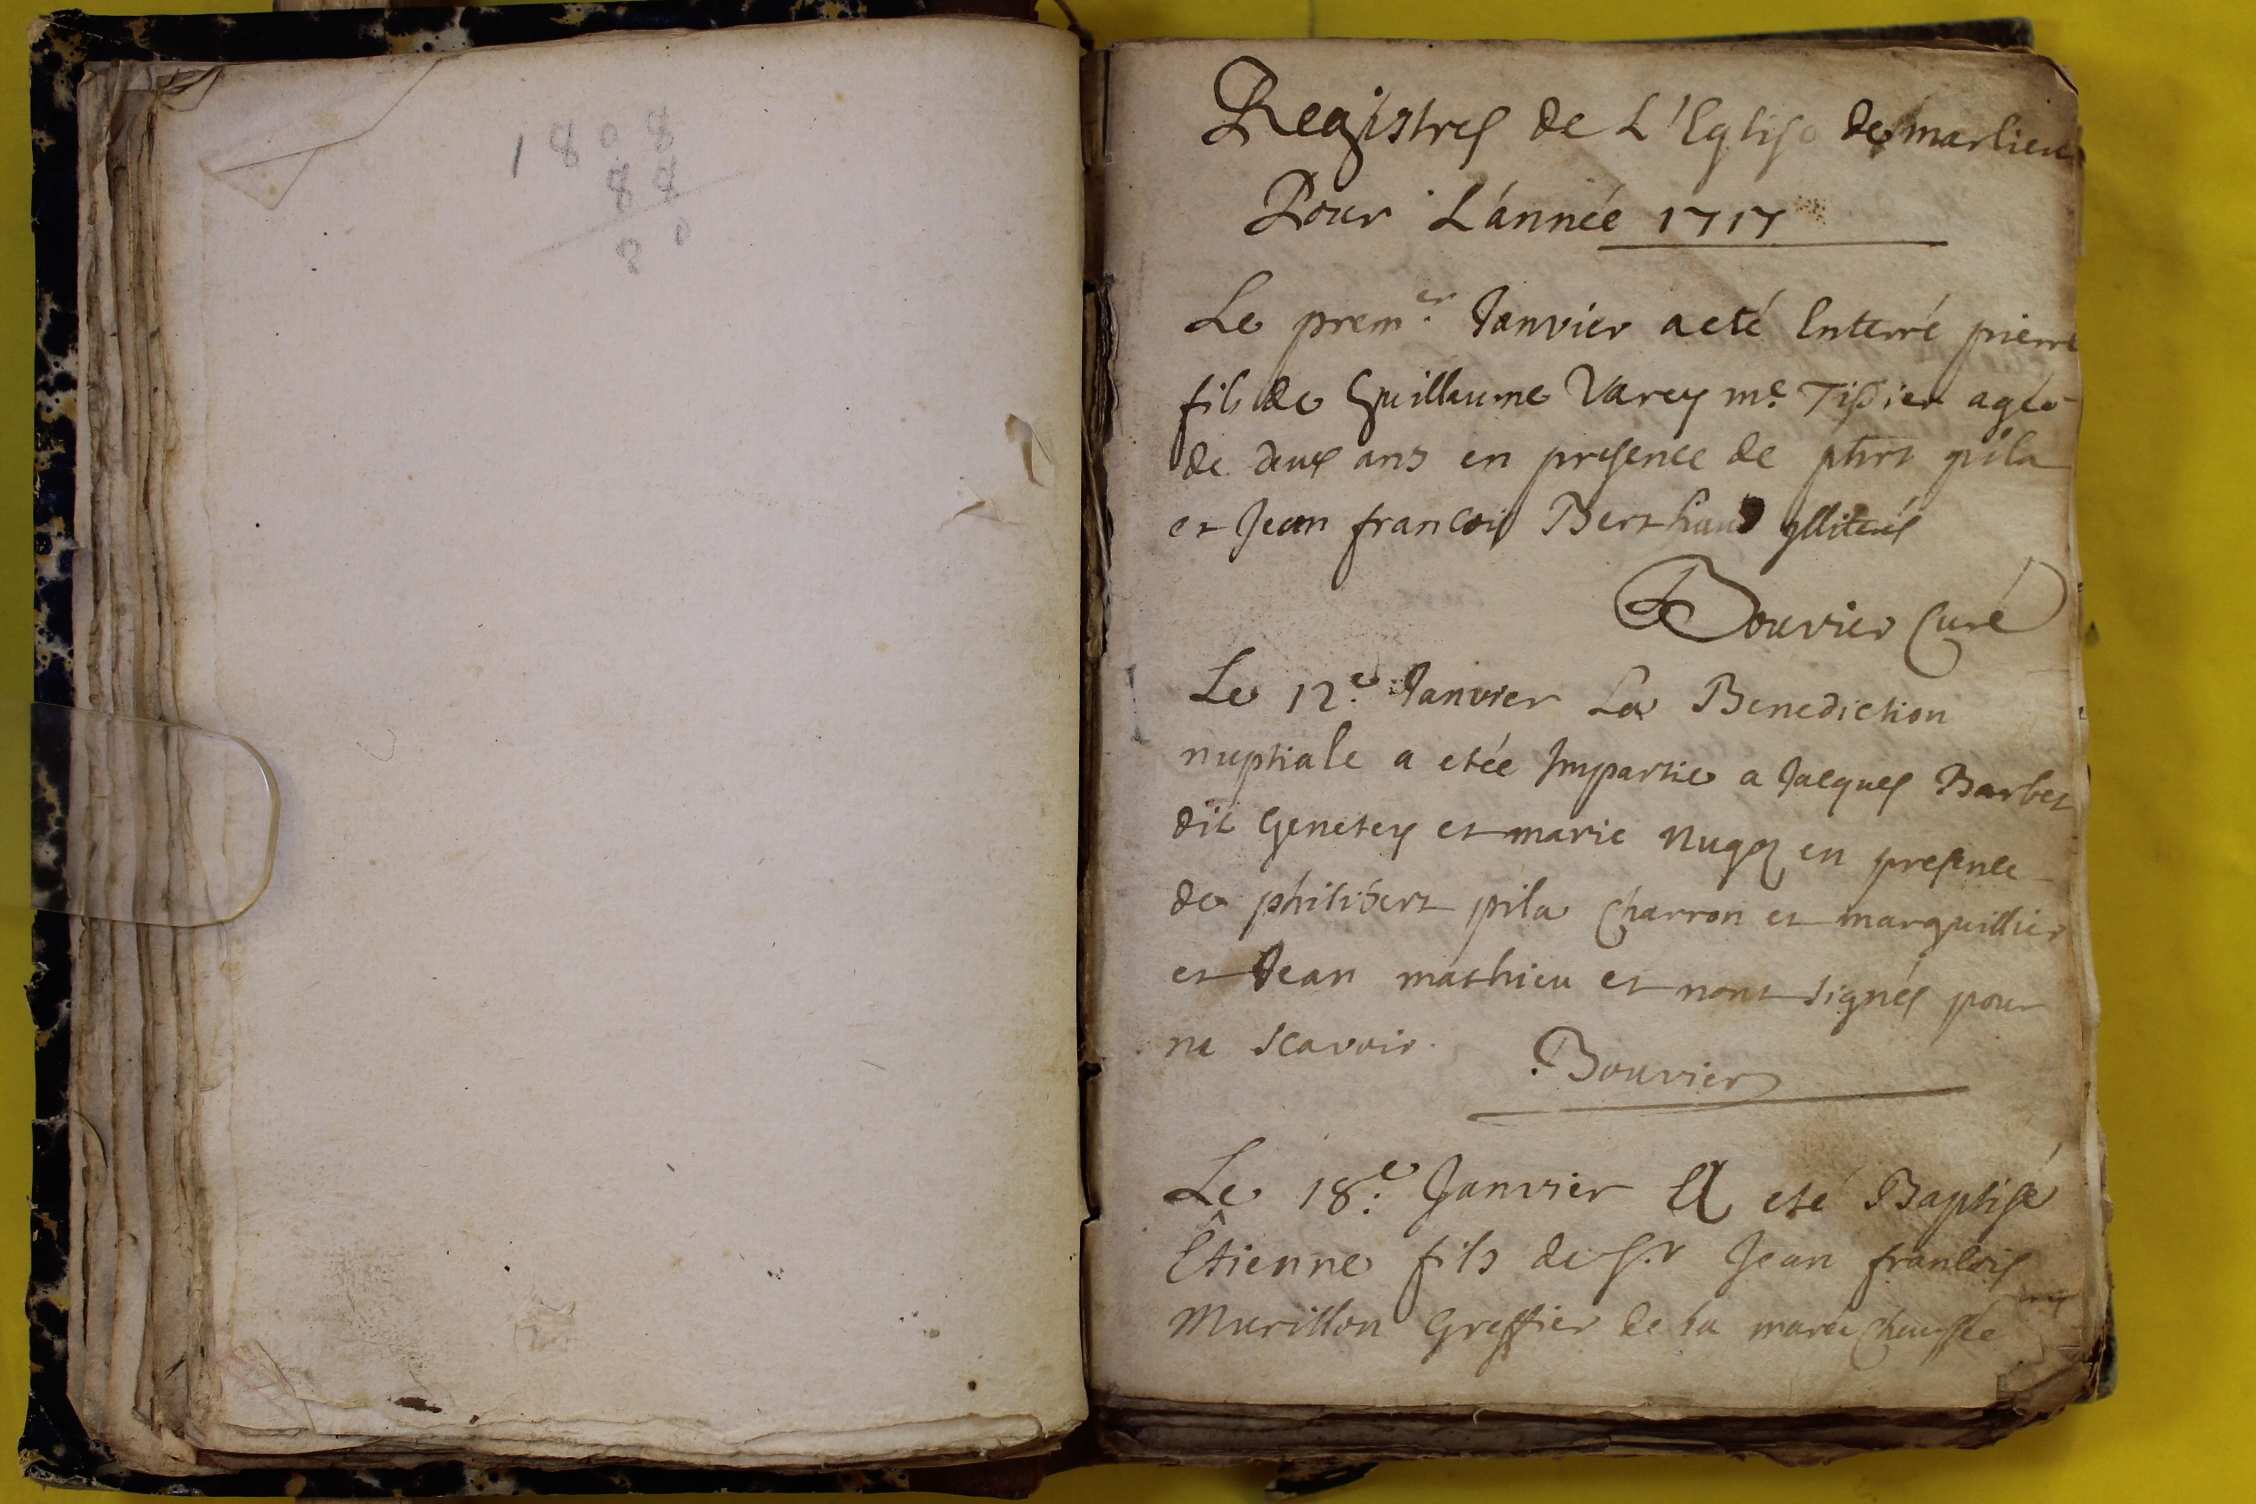 1808
88
20
Registres de L'Eglise de marlieu
Pour L'année 1717
Le prem.er Janvier a eté Enterré pierre
fils de Guillaume Varey m.e Tissier agée
de deux ans en presence de phrt pila
et Jean francois Berthaud Illiterés
Bouvier Curé
Le 12.e Janvier La Benediction
nuptiale a etée Impartie a Jacques Barbet
dit Genetey et marie en presence
de philibert pila Charron et marguillier
et Jean mathieu et nont signés pour
ne scavoir. Bouvier
Le 18.e Janvier A eté Baptisé
Êtienne fils de S.r Jean francois
Murillon Greffier de la marechaussée